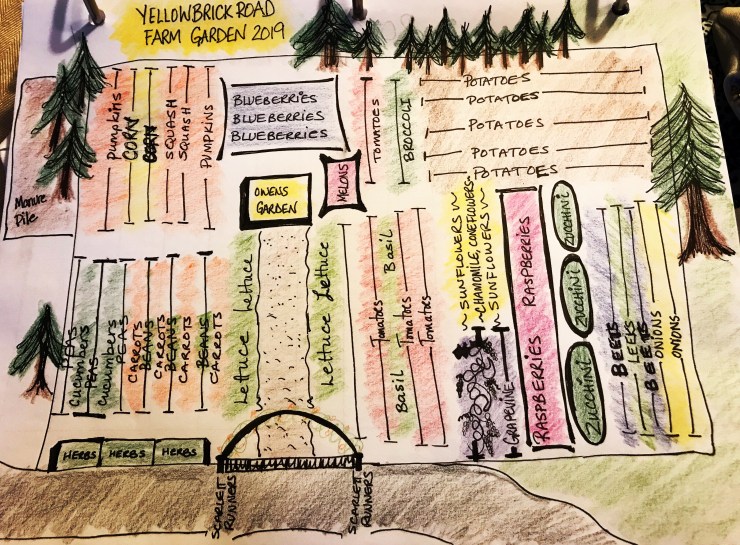 YELLOWBRICK ROAD
FARM GARDEN 2019
Manure
Pile
Pumpkins
CORN
CORN
SQUASH
SQUASH
PUMPKINS
BLUEBERRIES
BLUEBERRIES
BLUEBERRIES
TOMATOES
BROCCOLI
POTATOES
POTATOES
POTATOES
POTATOES
POTATOES
MELONS
OWENS
GARDEN
Lettuce Lettuce
Lettuce Lettuce
PEAS
Cucumbers
PEAS
Cucumbers
PEAS
CARROTS
BEANS
CARROTS
BEANS
CARROTS
BEANS
CARROTS
Tomatoes
Basil Basil
Tomatoes
Tomatoes
SUNFLOWERS
CHAMOMILE, CONEFLOWERS
SUNFLOWERS
GRAPEVINE
RASPBERRIES RASPBERRIES
ZUCCHINI
ZUCCHINI
ZUCCHINI
BEETS
LEEKS
BEETS
ONIONS
ONIONS
HERBS HERBS HERBS
SCARLETT
RUNNERS
SCARLETT
RUNNERS